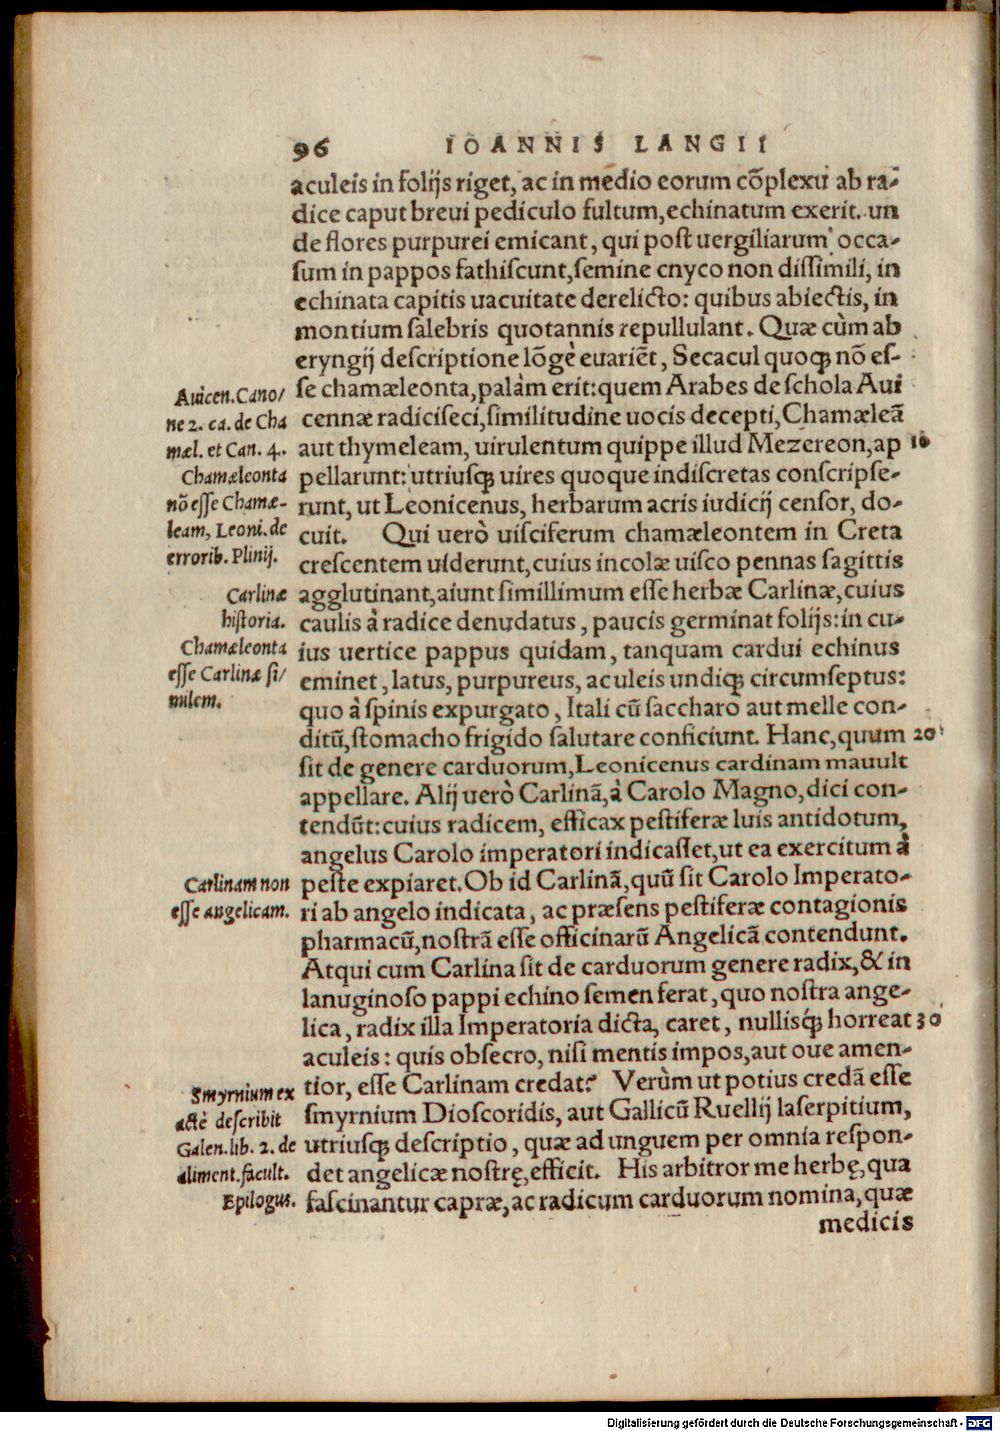 96 IOANNIS LANGII
aculeis in folijs riget, ac in medio eorum cõplexu ab ra-
dice caput breui pediculo fultum, echinatum exerit. un
de flores purpurei emicant, qui post uergiliarum occa-
sum in pappos fathiscunt, semine cnyco non dissimili, in
echinata capitis uacuitate derelicto: quibus abiectis, in
montium salebris quotannis repullulant. Quæ cùm ab
eryngij descriptione lõgè euariẽt, Secacul quoq; nõ es-
se chamæleonta, palàm erit: quem Arabes de schola Aui
cennæ radiciseci, similitudine uocis decepti, Chamæleã
aut thymeleam, uirulentum quippe illud Mezereon, ap 10
pellarunt: utriusq; uires quoque indiscretas conscripse-
runt, ut Leonicenus, herbarum acris iudicij censor, do-
cuit. Qui uerò uisciferum chamæleontem in Creta
crescentem uiderunt, cuius incolæ uisco pennas sagittis
agglutinant, aiunt simillimum esse herbæ Carlinæ, cuius
caulis à radice denudatus, paucis germinat folijs: in cu-
ius uertice pappus quidam, tanquam cardui echinus
eminet, latus, purpureus, aculeis undiq; circumseptus:
quo à spinis expurgato, Itali cũ saccharo aut melle con-
ditũ, stomacho frigido salutare conficiunt. Hanc, quum 20
sit de genere carduorum, Leonicenus cardinam mauult
appellare. Alij uerò Carlinã, à Carolo Magno, dici con-
tendũt: cuius radicem, efficax pestiferæ luis antidotum,
angelus Carolo imperatori indicasset, ut ea exercitum à
peste expiaret. Ob id Carlinã, quũ sit Carolo Imperato-
ri ab angelo indicata, ac præsens pestiferæ contagionis
pharmacũ, nostrã esse officinarũ Angelicã contendunt.
Atqui cum Carlina sit de carduorum genere radix, & in
lanuginoso pappi echino semen ferat, quo nostra ange-
lica, radix illa Imperatoria dicta, caret, nullisq́; horreat 30
aculeis: quis obsecro, nisi mentis impos, aut oue amen-
tior, esse Carlinam credat? Verùm ut potius credã esse
smyrnium Dioscoridis, aut Gallicũ Ruellij laserpitium,
utriusq; descriptio, quæ ad unguem per omnia respon-
det angelicæ nostrę, efficit. His arbitror me herbę, qua
fascinantur capræ, ac radicum carduorum nomina, quæ
medicis
Auicen. Cano/
ne 2. ca. de Cha
mæl. et Can. 4.
Chamæleonta
nõ esse Chamæ-
leam, Leoni. de
errorib. Plinij.
Carlinæ
historia.
Chamæleonta
esse Carlinæ si/
milem.
Carlinam non
esse angelicam.
Smyrnium ex
actè describit
Galen. lib. 2. de
aliment. facult.
Epilogus.
Digitalisierung gefördert durch die Deutsche Forschungsgemeinschaft - DFG